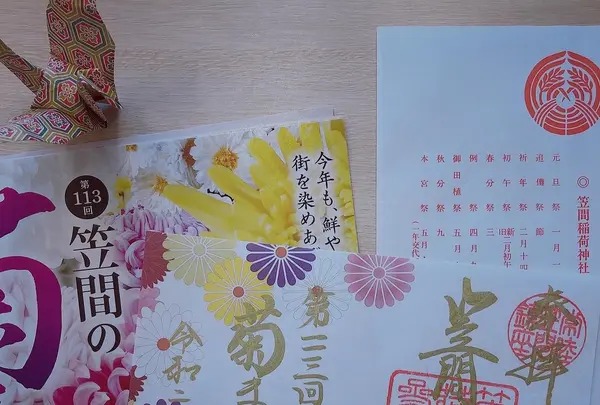 今年も、鮮や
街を染めあげ
第113回
笠間の
菊
◎笠間稲荷神社
元旦祭 一月一
追儺祭 節
祈年祭 二月十四
初午祭 新二月初午
春分祭 三
例祭 四月九
御田植祭 五月
秋分祭 九
本宮祭 五月
奉拝
笠間
第一一三回
菊ま
令和二